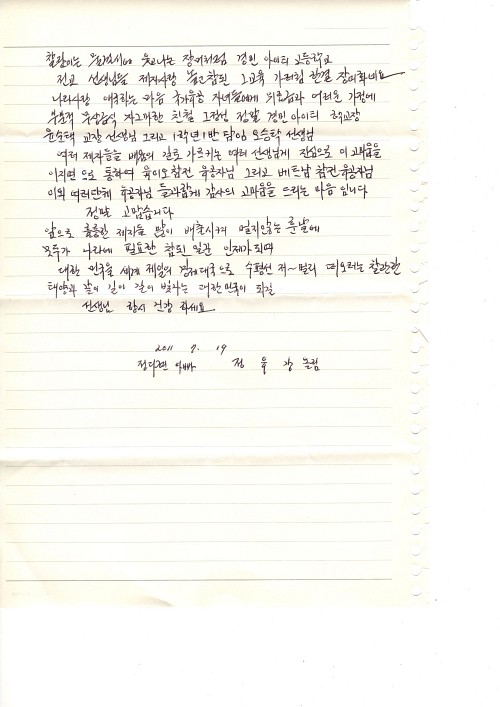 웃고나는 장미처럼 경민 아이티 고등학교
전교 선생님들 제자사랑 참된 그교육 가르침 한결 장미화네요
나라사랑 애국하는 마음 국가유공 자녀들에게 어려운 가정에
무료적 자그마한 친절 그정성 정말 경민 아이티 학교장
윤순택 교장 선생님 그리고 1학년1반 담임 오승택 선생님
여러 제자들을 배움의 길로 가르키는 여러 선생님게 진심으로 이 고마움을
이지면 으로 통하여 육이오참전 유공자님 그리고 베트남 참전 유공자님
이외 여러단체 유공자님 들과함게 감사의 고마움을 드리는 마음 입니다
정말 고맙습니다
앞으로 훌륭한 제자들 많이 배출시켜 멀지않는 훗날에
모두가 나라에 필요한 참된 일관 인재가되며
대한 민국을 세계 제일의 경제대국으로 수평선 저~멀리 떠오르는 찰란한
태양과 같이 길이 길이 빛나는 대한민국이 되길
선생님 항시 건강 하세요
2011 7. 19
아빠 정 유 강 올림